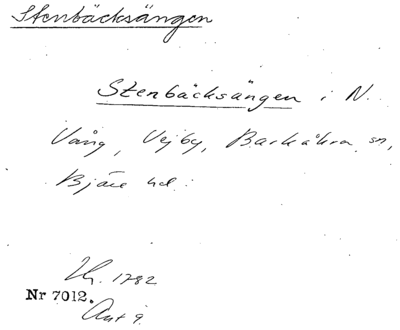 Stenbäcksängen
Stenbäcksängen i N.
Vång, Vejby, Barkåkra sn,
Bjäre hd.
1782
Nr 7012.
Akt 9.